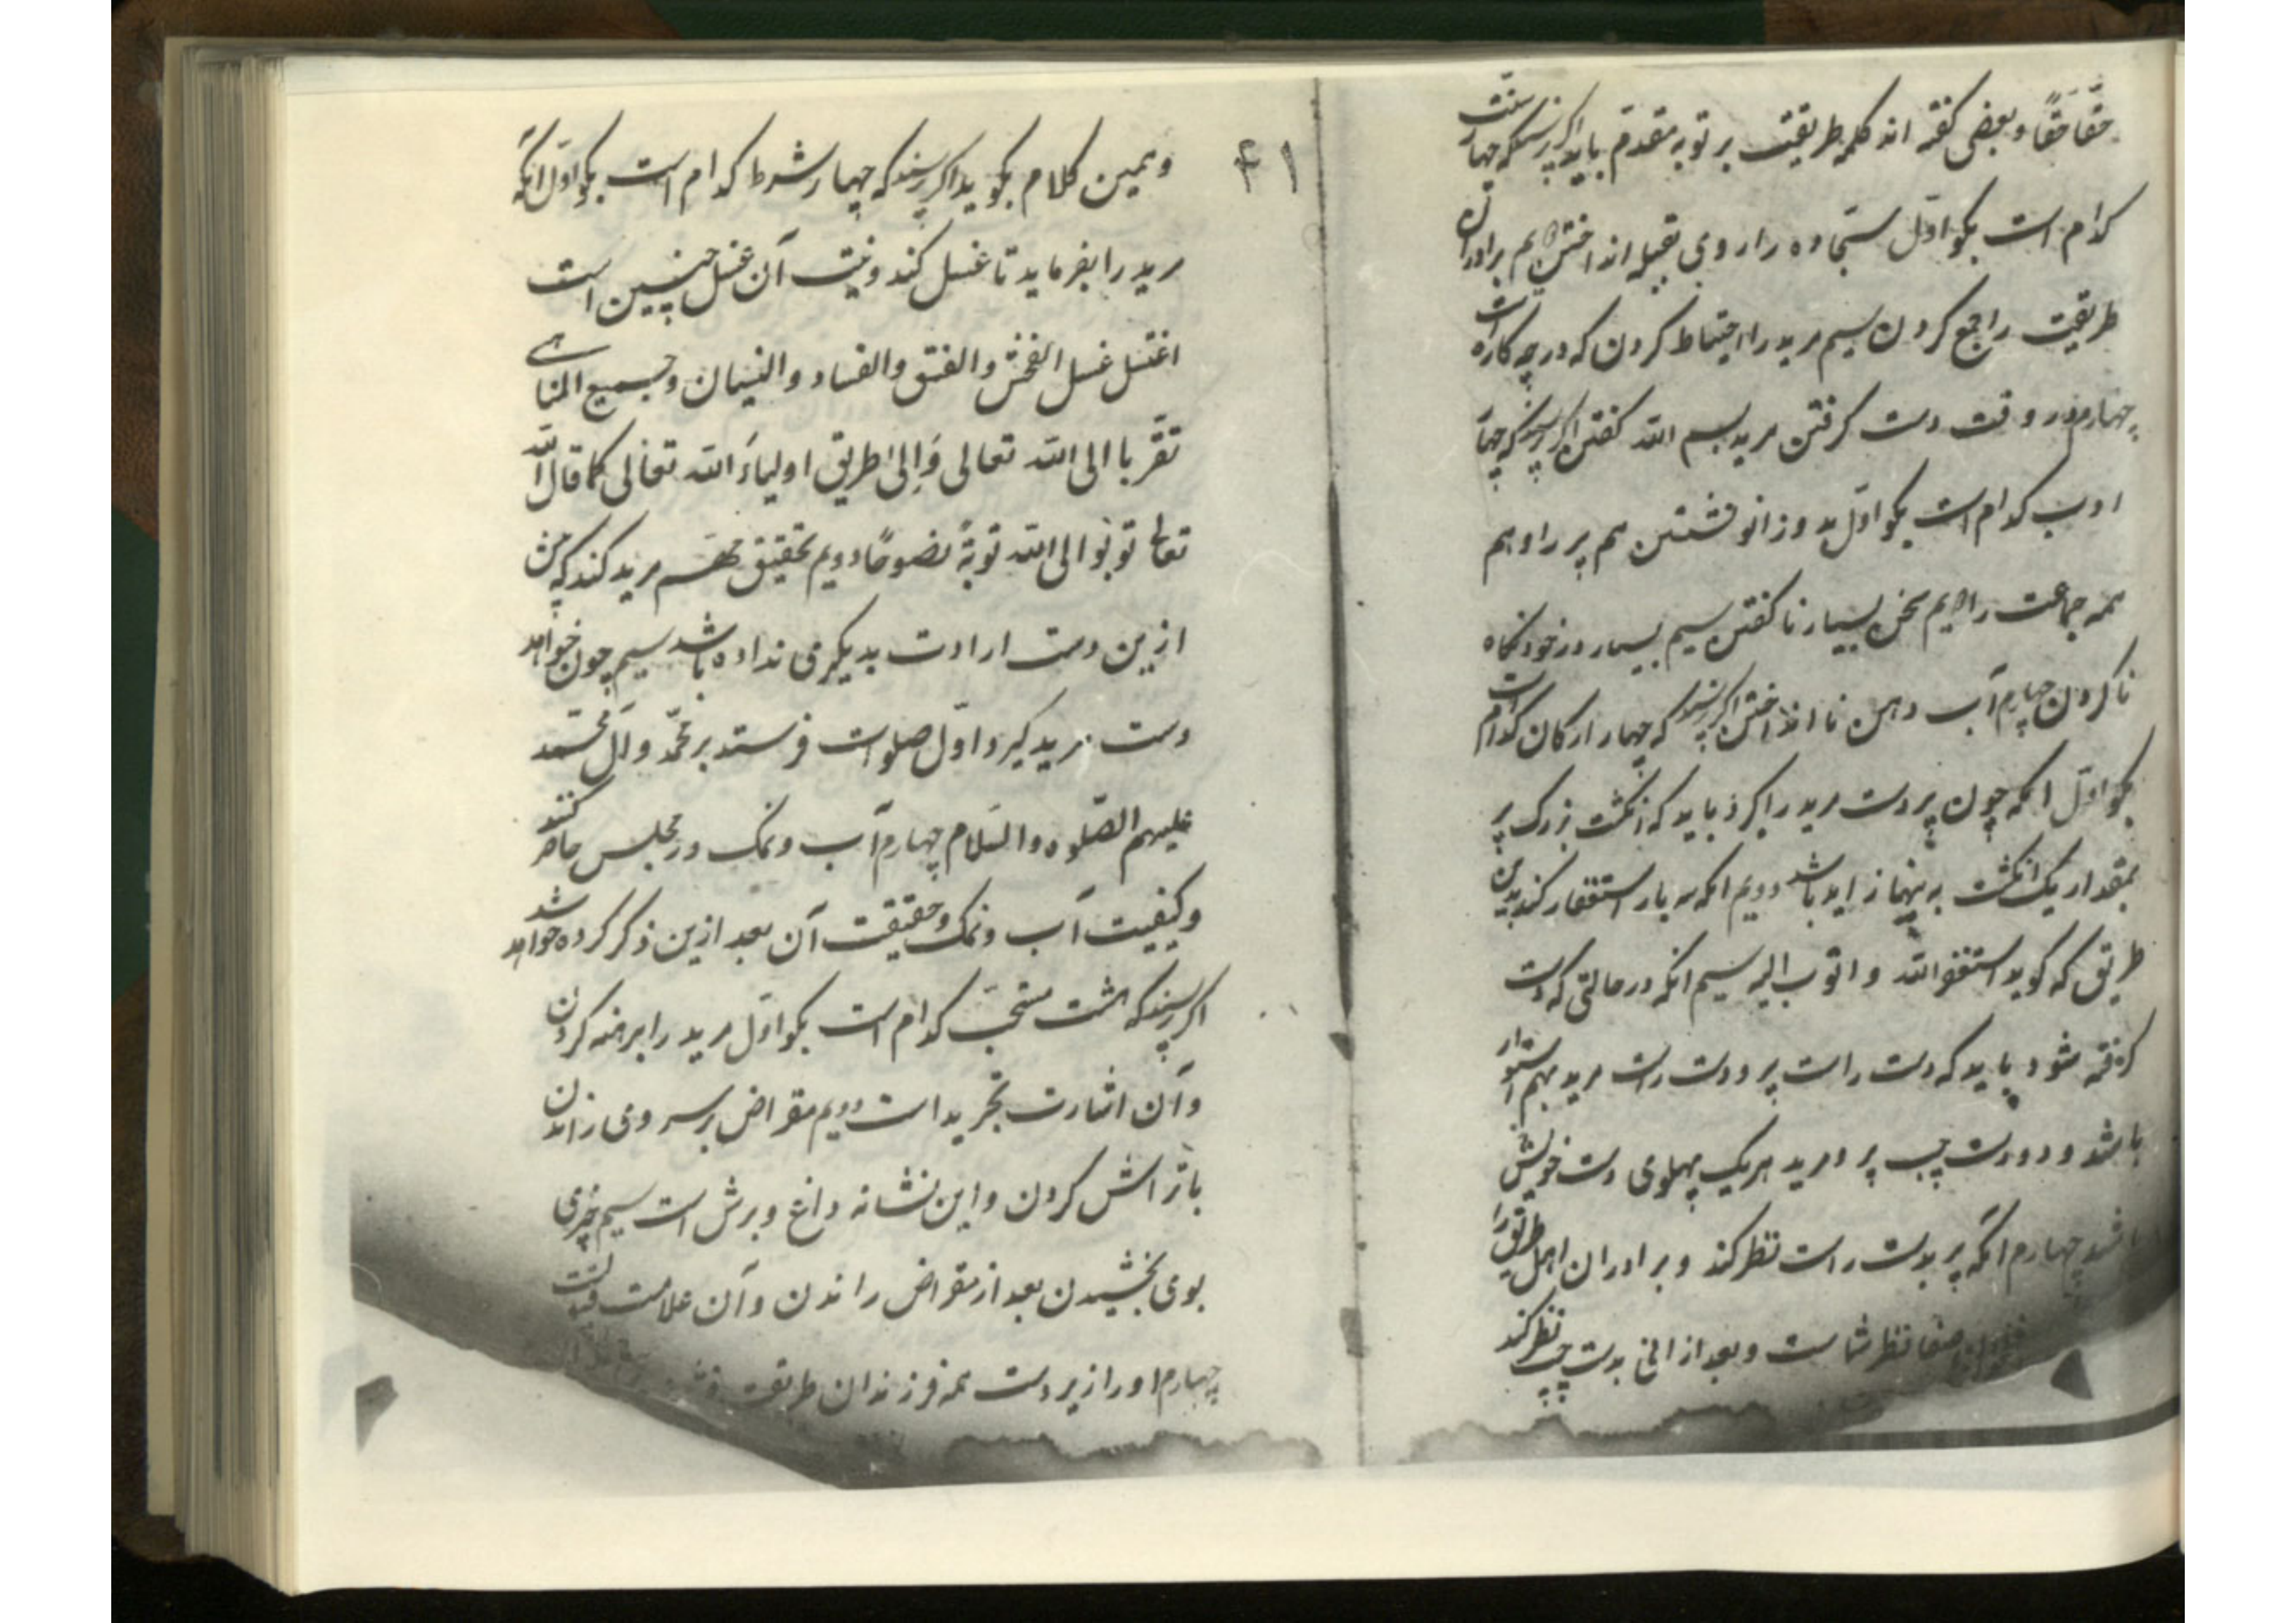 حقّا حقّا و بعضی گفته اند کلمه طریقت بر توبه مقدم باید اگر پرسند که چهار سنّت
کدام است بگو اوّل سجّاده را روی بقبله انداختن دویم برادران
طریقت را جمع کردن سیم مرید را احتیاط کردن که در چه کاره است
چهارم در وقت دست گرفتن مرید بسم الله گفتن اگر پرسند که چهار
ادب کدام است بگو اوّل بدو زانو نشستن هم پیر را و هم
همه جماعت را دویم سخن بسیار ناگفتن سیم بسیار در خود نگاه
ناکردن چهارم آب دهن نا انداختن اگر پرسند که چهار ارکان کدام است
بگو اوّل انکه چون پیر دست مرید را گیرد باید که انگشت بزرگ پیر
بمقدار یک انگشت به پنها زاید باشد دویم انکه سه بار استغفار کند بدین
طریق که گوید استغفر الله و اتوب الیه سیم انکه در حالتی که دست
گرفته شود باید که دست راست پیر و دست راست مرید بهم استوار
باشد و دو دست چپ پیر و مرید هر یک پهلوی دست خویش
باشد چهارم انکه پیر بدست راست نظر کند و برادران اهل طریق را
صفا نظر شماست و بعد از انی بدست چپ نظر کند
۴۱
و همین کلام بگوید اگر پرسند که چهار شرط کدام است بگو اوّل انکه
مرید را بفرماید تا غسل کند و نیت آن غسل چنین است
اغتسل غسل الفحش و الفسق و الفساد و النسیان و جمیع المناهی
تقرّبا الی الله تعالی وَ اِلی طریق اولیاءَ الله تعالی کما قال الله
تعالی توبُوا الی الله توبةً نصوحًا دویم تحقیق مرید کند که پیش
ازین دست ارادت بدیگری نداده باشد سیم چون خواهد
دست مرید گیرد اوّل صلوات فرستد بر محمّد و آل محمّد
علیهم الصّلوه و السّلام چهارم آب و نمک در مجلس حاضر کنند
و کیفیت آب و نمک و حقیقت آن بعد ازین ذکر کرده خواهد شد
اگر پرسند که هشت مستحبّ کدام است بگو اوّل مرید را برهنه کردن
و آن اشارت تجرید است دویم مقراض بر سر وی راندن
یا تراش کردن و این نشانه داغ و برش است سیم چیزی
بوی بخشیدن بعد از مقراض راندن و آن علامت
چهارم او را زیر دست همه فرزندان طریقت